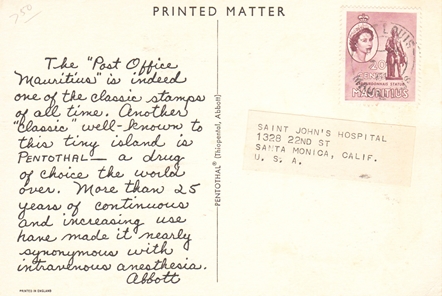 250
PRINTED MATTER
The "Post Office
Mauritius" is indeed
one of the classic stamps
of all time. Another
"classic" well-known to
this tiny island is
PENTOTHAL — a drug
of choice the world
over. More than 25
years of continuous
and increasing use
have made it nearly
synonymous with
intravenous anesthesia.
Abbott
PRINTED IN ENGLAND
PENTOTHAL® (Thiopental, Abbott)
LOUIS
20
CENTS
MAURITIUS
SAINT JOHN'S HOSPITAL
1328 22ND ST
SANTA MONICA, CALIF.
U. S. A.